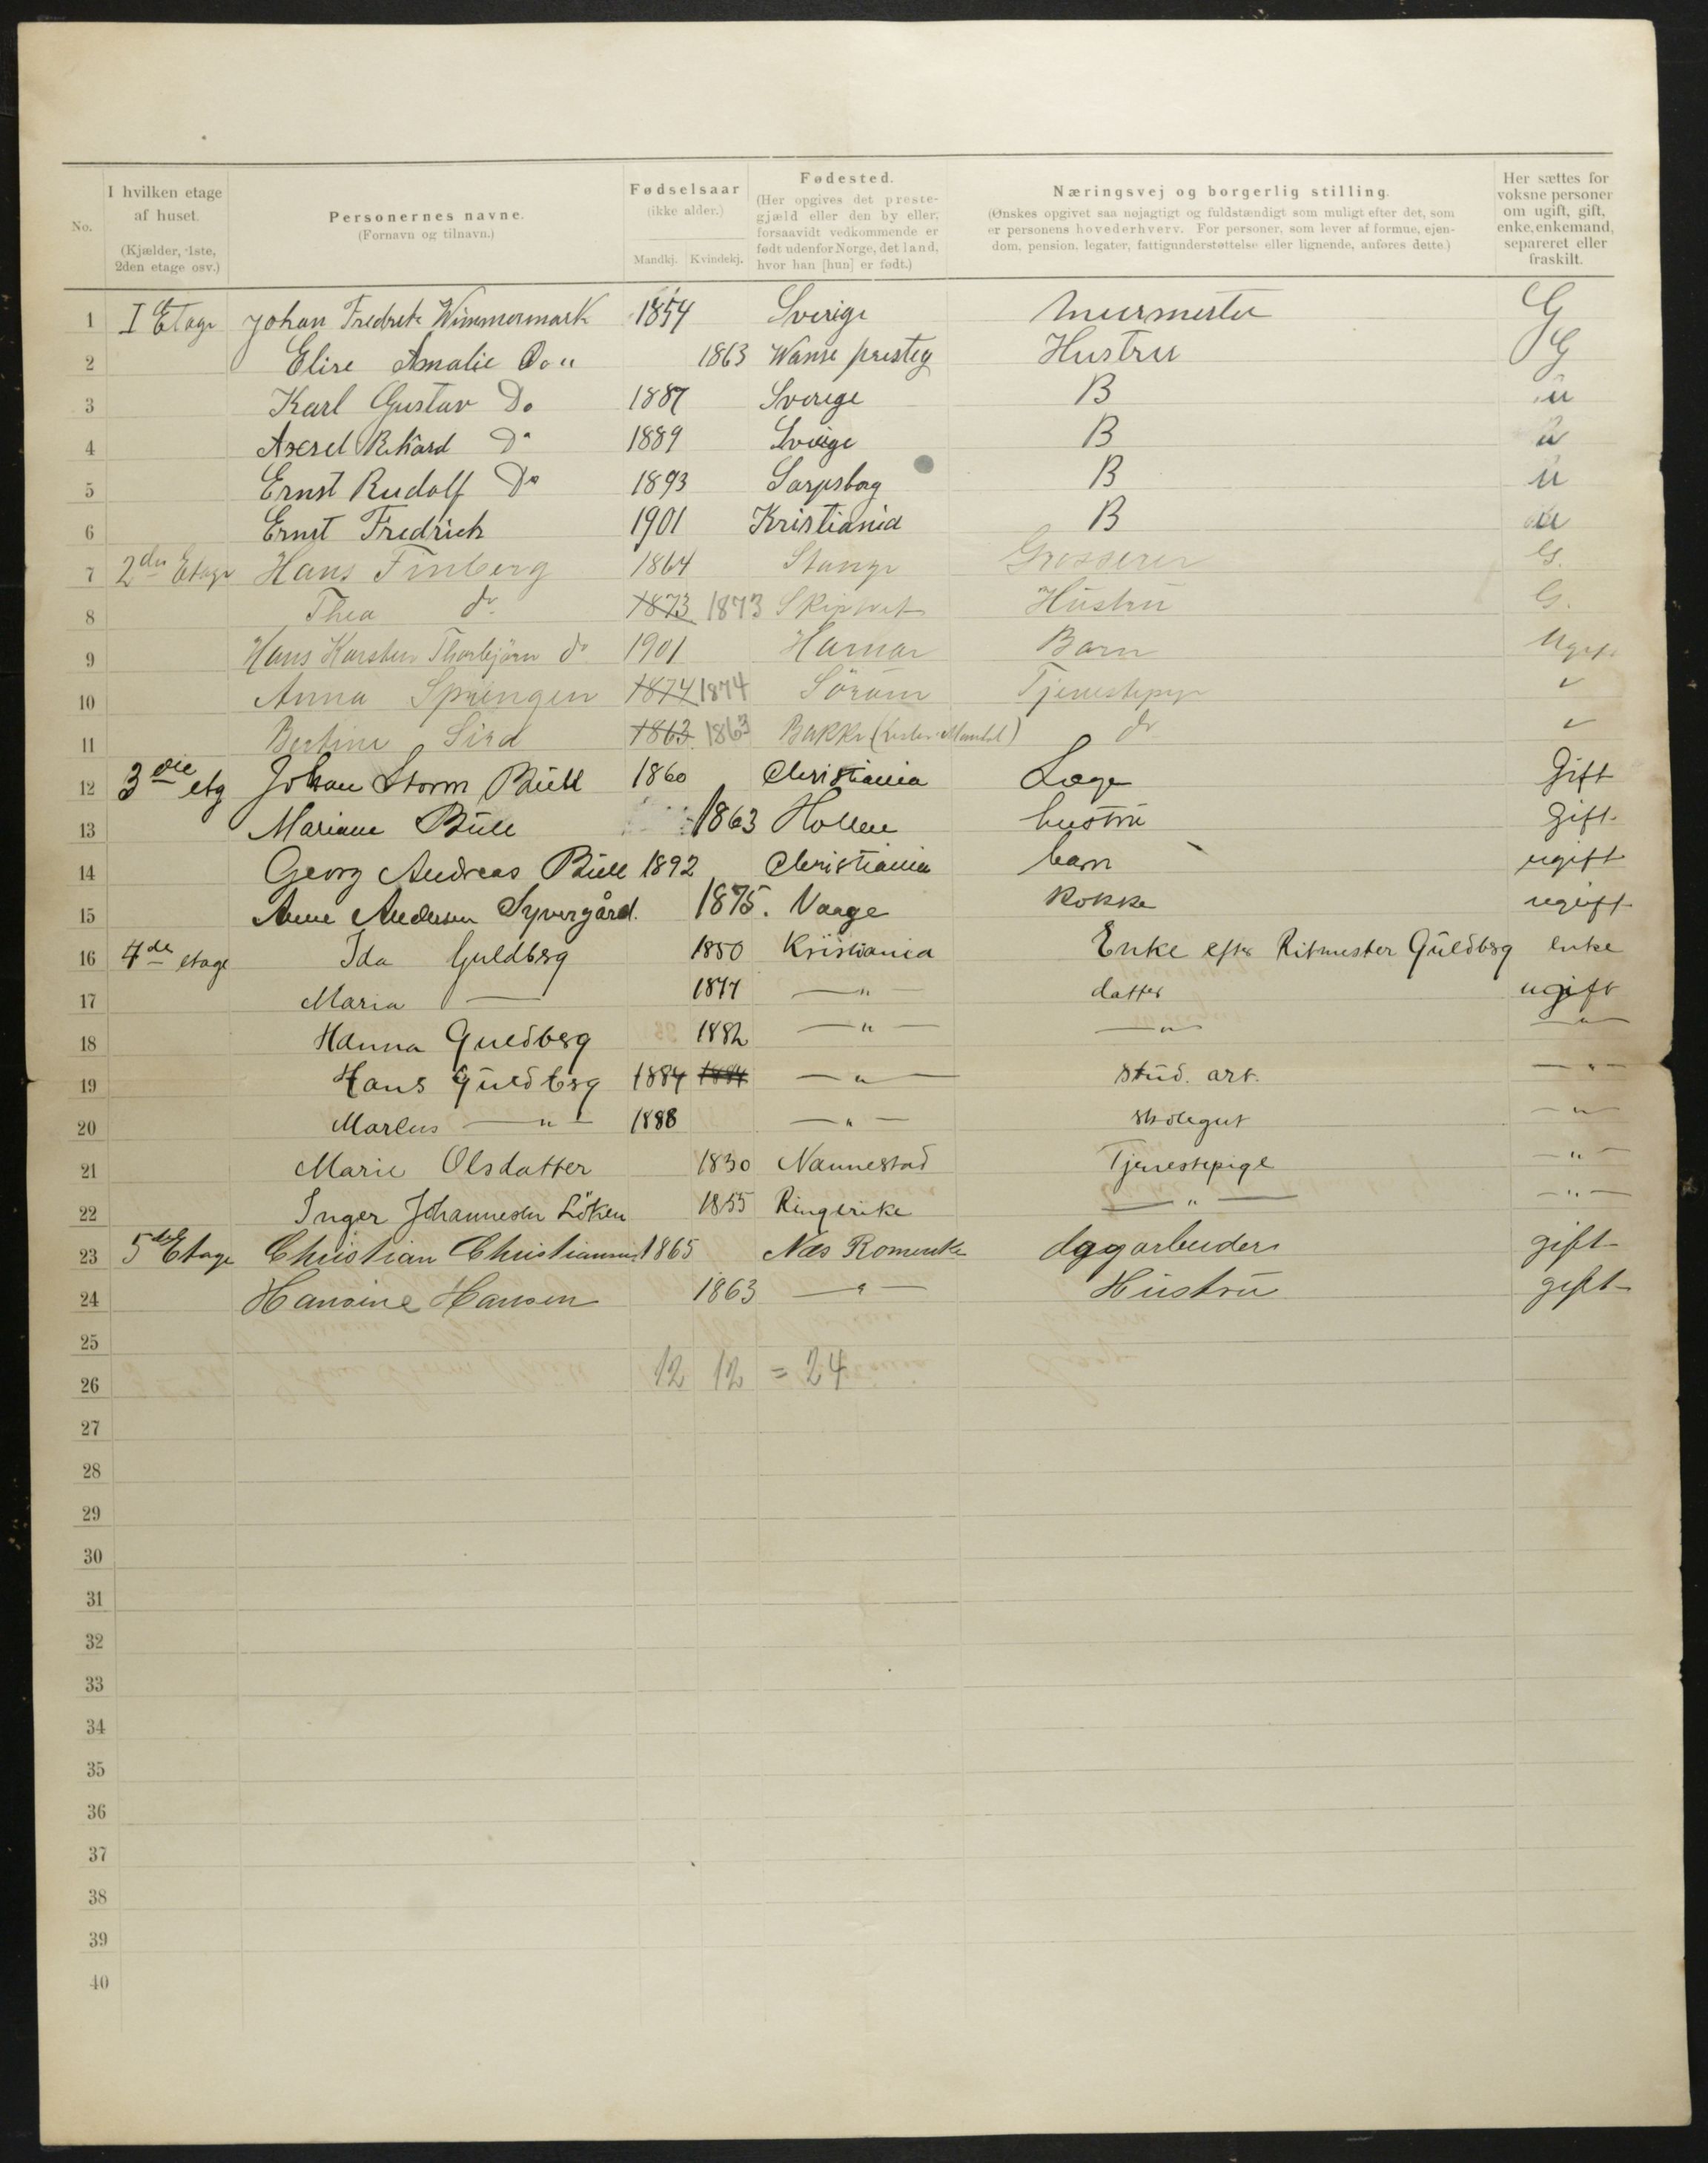 No.
I hvilken etage af huset. (Kjælder, 1ste, 2den etage osv.)
Personernes navne. (Fornavn og tilnavn.)
Fødselsaar (ikke alder.) Mandkj. Kvindekj.
Fødested. (Her opgives det prestegjæld eller den by eller, forsaavidt vedkommende er født udenfor Norge, det land, hvor han [hun] er født.)
Næringsvej og borgerlig stilling. (Ønskes opgivet saa nøjagtigt og fuldstændigt som muligt efter det, som er personens hovederhverv. For personer, som lever af formue, ejendom, pension, legater, fattigunderstøttelse eller lignende, anføres dette.)
Her sættes for voksne personer om ugift, gift, enke, enkemand, separeret eller fraskilt.
1 I Etage Johan Fredrik Wimmermark 1854 Sverige Murmester G
2 Elise Amalie Do " 1863 Wanse presteg Hustru G
3 Karl Gustav Do 1887 Sverige B u
4 Axsel Rikard Do 1889 Sverige B u
5 Ernst Rudolf Do 1893 Sarpsborg B u
6 Ernst Fredrick 1901 Kristiania B u
7 2den Etage Hans Finberg 1864 Stange Grosserer G.
8 Thea do 1873 1873 Skiptvet Hustru G.
9 Hans Karsten Thorbjörn do 1901 Hamar Barn Ugift
10 Anna Springen 1874 1874 Sörum Tjenestepige "
11 Bertine Sird 1863 1863 Bakke do "
12 3die etg Johan Storm Bull 1860 Christiania Læge Gift
13 Mariane Bull 1863 Hollen hustru gift.
14 Georg Andreas Bull 1892 Christiania barn ugift
15 Anne Andersen Syvergård. 1875. Vaage Kokke ugift
16 4de etage Ida Guldberg 1850 Kristiania Enke efter Ritmester Guldberg enke
17 Maria — 1877 — " — datter ugift
18 Hanna Guldberg 1882 — " — — " — — " —
19 Hans Guldberg 1884 1884 — " — stud. art. — " —
20 Marius — " — 1888 — " — skolegut — " —
21 Marie Olsdatter 1830 Nannestad Tjenestepige — " —
22 Inger Johannesen Löken 1855 Ringerike — " — — " —
23 5de Etage Christian Christiansen 1865 Næs Romerike dagarbeider gift
24 Hansine Hansen 1863 — " — Hustru gift
25
26 12 12 = 24
27
28
29
30
31
32
33
34
35
36
37
38
39
40